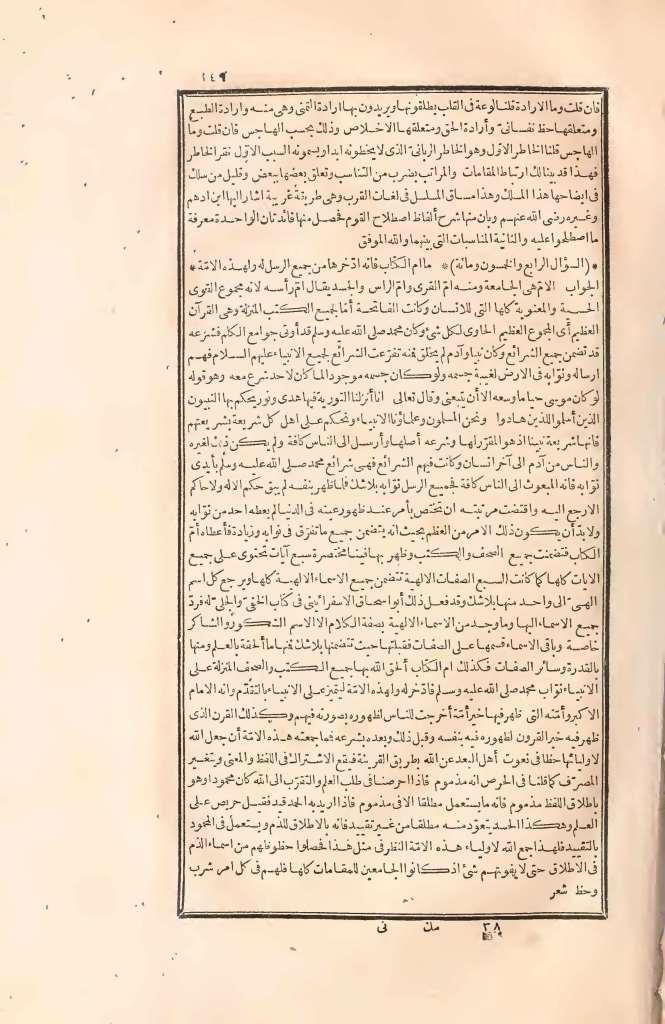 ١٤٩
فان قلت وما الارادة قلنا لوعة فى القلب يطلقونها ويريدون بها ارادة التمنى وهى منه وارادة الطبع
ومتعلقها حظ نفسانىّ وأرادة الحق ومتعلقها الاخلاص وذلك بحسب الهاجس فان قلت وما
الهاجس قلنا الخاطر الاوّل وهو الخاطر الربانىّ الذى لا يخطئ أبدا ويسمونه السبب الاوّل نقر الخاطر
فهذا قد بينا لك ارتباط المقامات والمراتب بضرب من التناسب وتعلق بعضها ببعض وقليل من سلك
فى ايضاحها هذا المسلك وهذا مساق المسلسل فى لغات القرب وهى طريقة غريبة اشار اليها ابن ادهم
وغيره رضى الله عنهم وبان منها شرح ألفاظ اصطلاح القوم فحصل منها فائدتان الواحدة معرفة
ما اصطلحوا عليه والثانية المناسبات التى بينها والله الموفق
* (السؤال الرابع والخمسون ومائة) * ما ام الكتاب فانه ادّخرها من جميع الرسل له ولهذه الامّة *
الجواب الامّ هى الجامعة ومنه ام القرى وامّ الراس والجسد يقال امّ رأسه لانه مجموع القوى
الحسية والمعنوية كلها التى للانسان وكانت الفاتحة أمّا لجميع الكتب المنزلة وهى القرآن
العظيم أى المجموع العظيم الحاوى لكل شئ وكان محمد صلى الله عليه وسلم قد أوتى جوامع الكلم فشرعه
قد تضمن جميع الشرائع وكان نبيا وآدم لم يخلق فمنه تفرّعت الشرائع لجميع الانبياء عليهم السلام فهم
ارساله ونوّابه فى الارض لغيبة جسمه ولو كان جسمه موجودا لما كان لاحد شرع معه وهو قوله
لو كان موسى حيا ما وسعه الا أن يتبعنى وقال تعالى انا أنزلنا التورية فيها هدى ونور يحكم بها النبيون
الذين أسلموا للذين هادوا ونحن المسلمون وعلماؤنا الانبياء ونحكم على اهل كل شريعة بشريعتهم
فانها شريعة نبينا اذ هو المقرّر لها وشرعه أصلها وأرسل الى الناس كافة ولم يكن ذلك لغيره
والناس من آدم الى آخر انسان وكانت فيهم الشرائع فهى شرائع محمد صلى الله عليه وسلم بأيدى
نوّابه فانه المبعوث الى الناس كافة فجميع الرسل نوّابه بلا شك فلما ظهر بنفسه لم يبق حكم الا له ولا حاكم
الا رجع اليه واقتضت مرتبته ان تختص بأمر عند ظهور عينه فى الدنيا لم يعطه احد من نوّابه
ولا بدّ أن يكون ذلك الامر من العظم بحيث انه يتضمن جميع ما تفرّق فى نوّابه وزيادة فأعطاه امّ
الكتاب فتضمنت جميع الصحف والكتب وظهر بها فينا مختصرة سبع آيات تحتوى على جميع
الايات كلها كما كانت السبع الصفات الالهية تتضمن جميع الاسماء الالهية كلها ويرجع كل اسم
الهىّ الى واحد منها بلا شك وقد فعل ذلك أبو اسحاق الاسفراينى فى كتاب الخفىّ والجلىّ له فردّ
جميع الاسماء اليها وما وجد من الاسماء الالهية بصفة الكلام الا الاسم الشكور والشاكر
خاصة وباقى الاسماء قسمها على الصفات فقبلتها حيث تتضمنها بلا شك فمنها ما ألحقه بالعلم ومنها
بالقدرة وسائر الصفات فكذلك ام الكتاب ألحق الله بها جميع الكتب والصحف المنزلة على
الانبياء نوّاب محمد صلى الله عليه وسلم فادّخر له ولهذه الامّة ليتميز على الانبياء بالتقدّم وانه الامام
الاكبر وأمّته التى ظهر فيها خير أمّة أخرجت للناس لظهوره بصورته فيهم وكذلك القرن الذى
ظهر فيه خير القرون لظهوره فيه بنفسه وقبل ذلك وبعده بشرعه فما جمعته هذه الامّة أن جعل الله
لاوليائها حظا فى نعوت أهل البعد عن الله بطريق القرينة فيقع الاشتراك فى اللفظ والمعنى ويتغير
المصرف كما قلنا فى الحرص انه مذموم فاذا حرصنا فى طلب العلم والتقرّب الى الله كان محمودا وهو
باطلاق اللفظ مذموم فانه ما يستعمل مطلقا الا فى مذموم فاذا اريد به الحمد قيد فقيل حريص على
العلم وهكذا الحسد يتعوّذ منه مطلقا من غير تقييد فانه بالاطلاق للذم ويستعمل فى المحمود
بالتقييد فلهذا جمع الله لاولياء هذه الامّة النظر فى مثل هذا فحصلوا حظوظهم من اسماء الذم
فى الاطلاق حتى لا يفوتهم شئ اذ كانوا الجامعين للمقامات كلها فلهم فى كل امر شرب
وحظ شعر
٣٨ مك نى